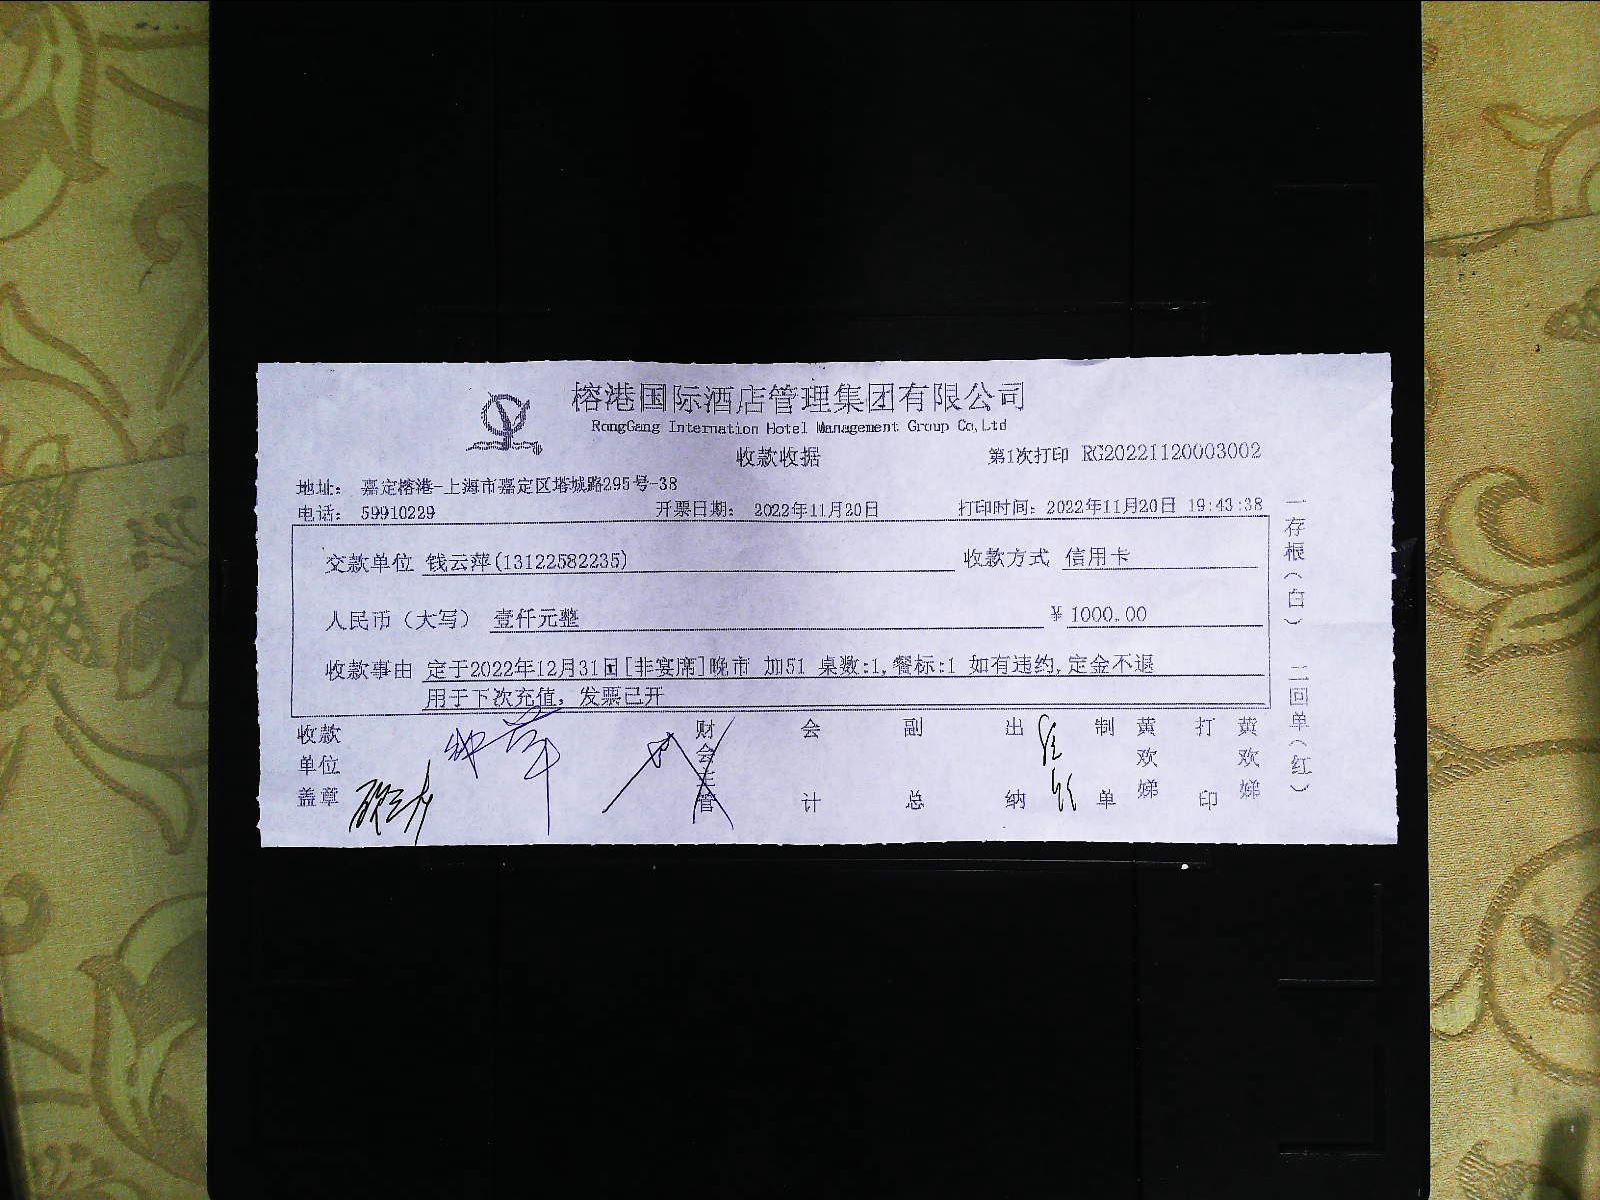 榕港国际酒店管理集团有限公司
RongGang Internation Hotel Management Group Co,Ltd
收款收据
第1次打印 RG20221120003002
地址： 嘉定榕港-上海市嘉定区塔城路295号-38
电话： 59910229 开票日期： 2022年11月20日 打印时间：2022年11月20日 19:43:38
交款单位 钱云萍(13122582235) 收款方式 信用卡
人民币（大写） 壹仟元整 ¥ 1000.00
收款事由 定于2022年12月31日[非宴席]晚市 加51 桌数:1,餐标:1 如有违约,定金不退
用于下次充值，发票已开
收款单位盖章 财会主管 会计 副总 出纳 制单 黄欢娣 打印 黄欢娣
一存根（白） 二回单（红）